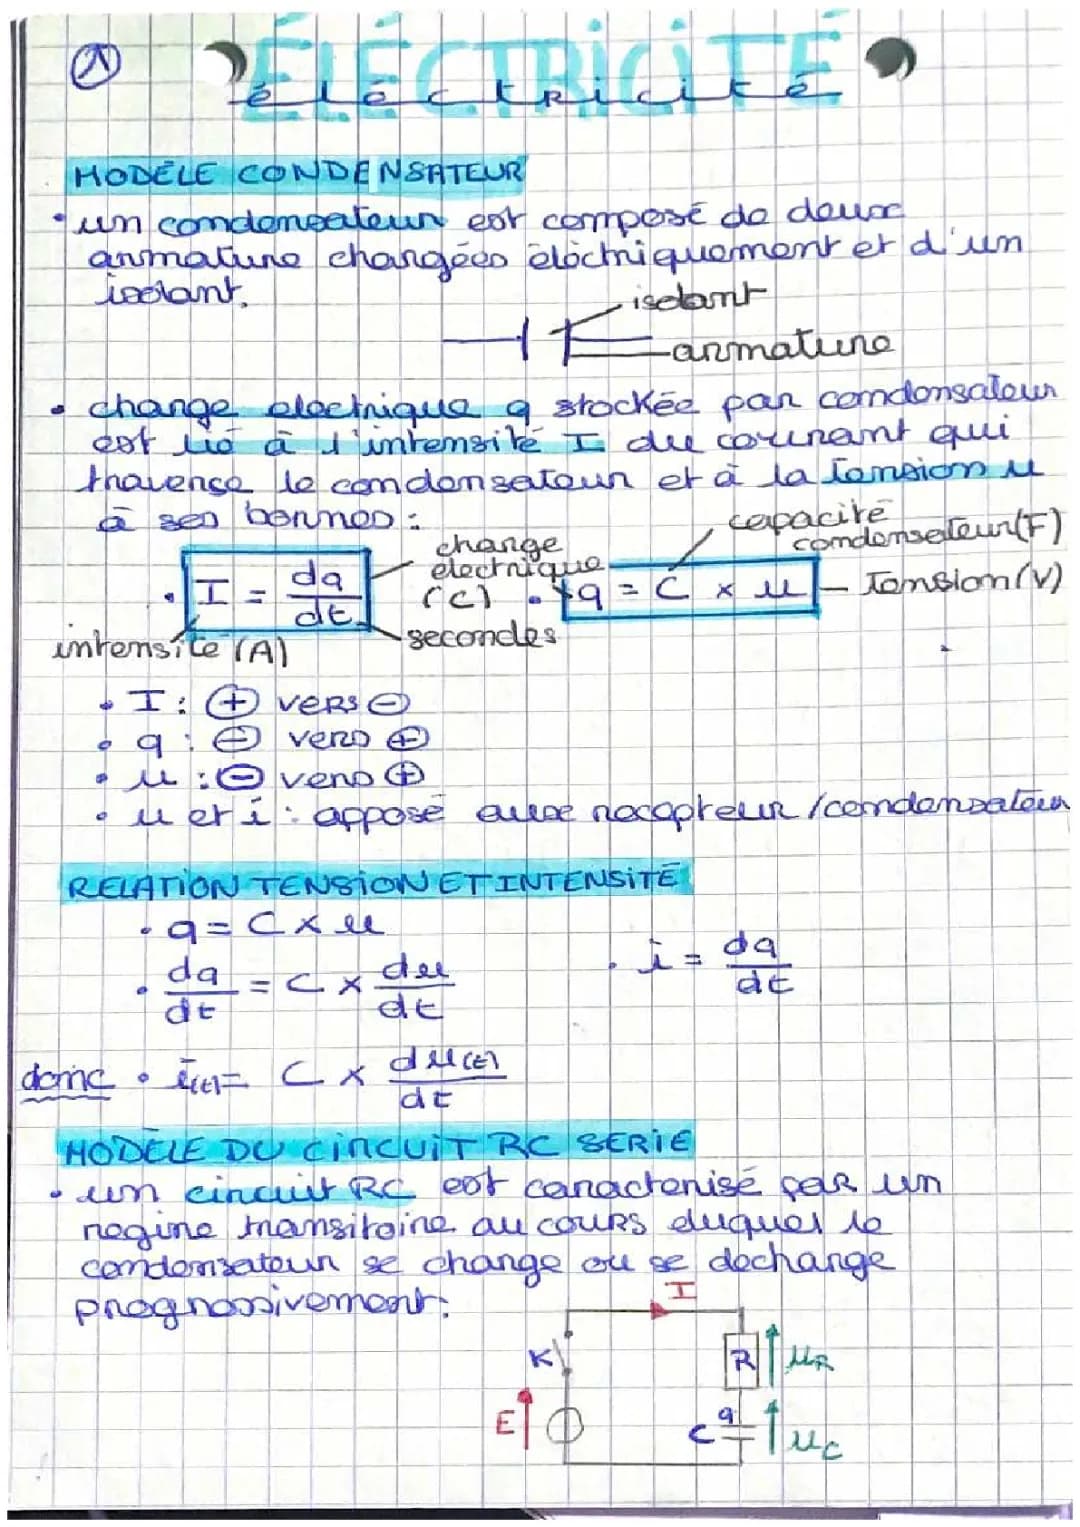 1
ÉLÉCTRICITÉ
électricité
MODÈLE CONDENSATEUR
• un condensateur est composé de deux
armature chargées éléctriquement et d'un
isolant.
isolant
armature
• charge electrique q stockée par condensateur
est lié à l'intensité I du courant qui
traverse le condensateur et à la tension u
à ses bornes :
capacité
condensateur (F)
charge
électrique
(C)
• I = dq/dt
• q = C × u
Tension (V)
secondes
intensité (A)
• I : ⊕ vers ⊖
• q : ⊖ vers ⊕
• u : ⊖ vers ⊕
• u et i : opposé aux recepteur / condensateur
RELATION TENSION ET INTENSITÉ
• q = C × u
• dq/dt = C × du/dt
• i = dq/dt
donc • i(t) = C × du(t)/dt
MODÈLE DU CIRCUIT RC SERIE
• un circuit RC est caracterisé par un
regime transitoire au cours duquel le
condensateur se charge ou se decharge
progressivement :
I
K
R
uR
E
q
C
uC